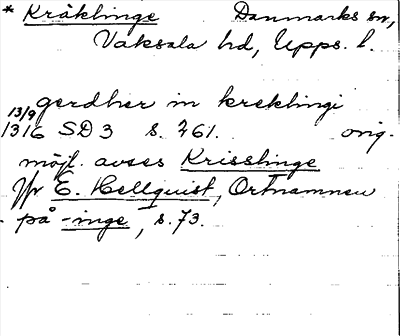 * Kråklinge Danmarks sn,
Vaksala hd, Upps. l.
gerdher in kreklingi
13/9
1316 SD 3 s. 261. orig.
möjl. avses Krisslinge
Jfr E. Hellquist, Ortnamnen
på -inge, s. 73.